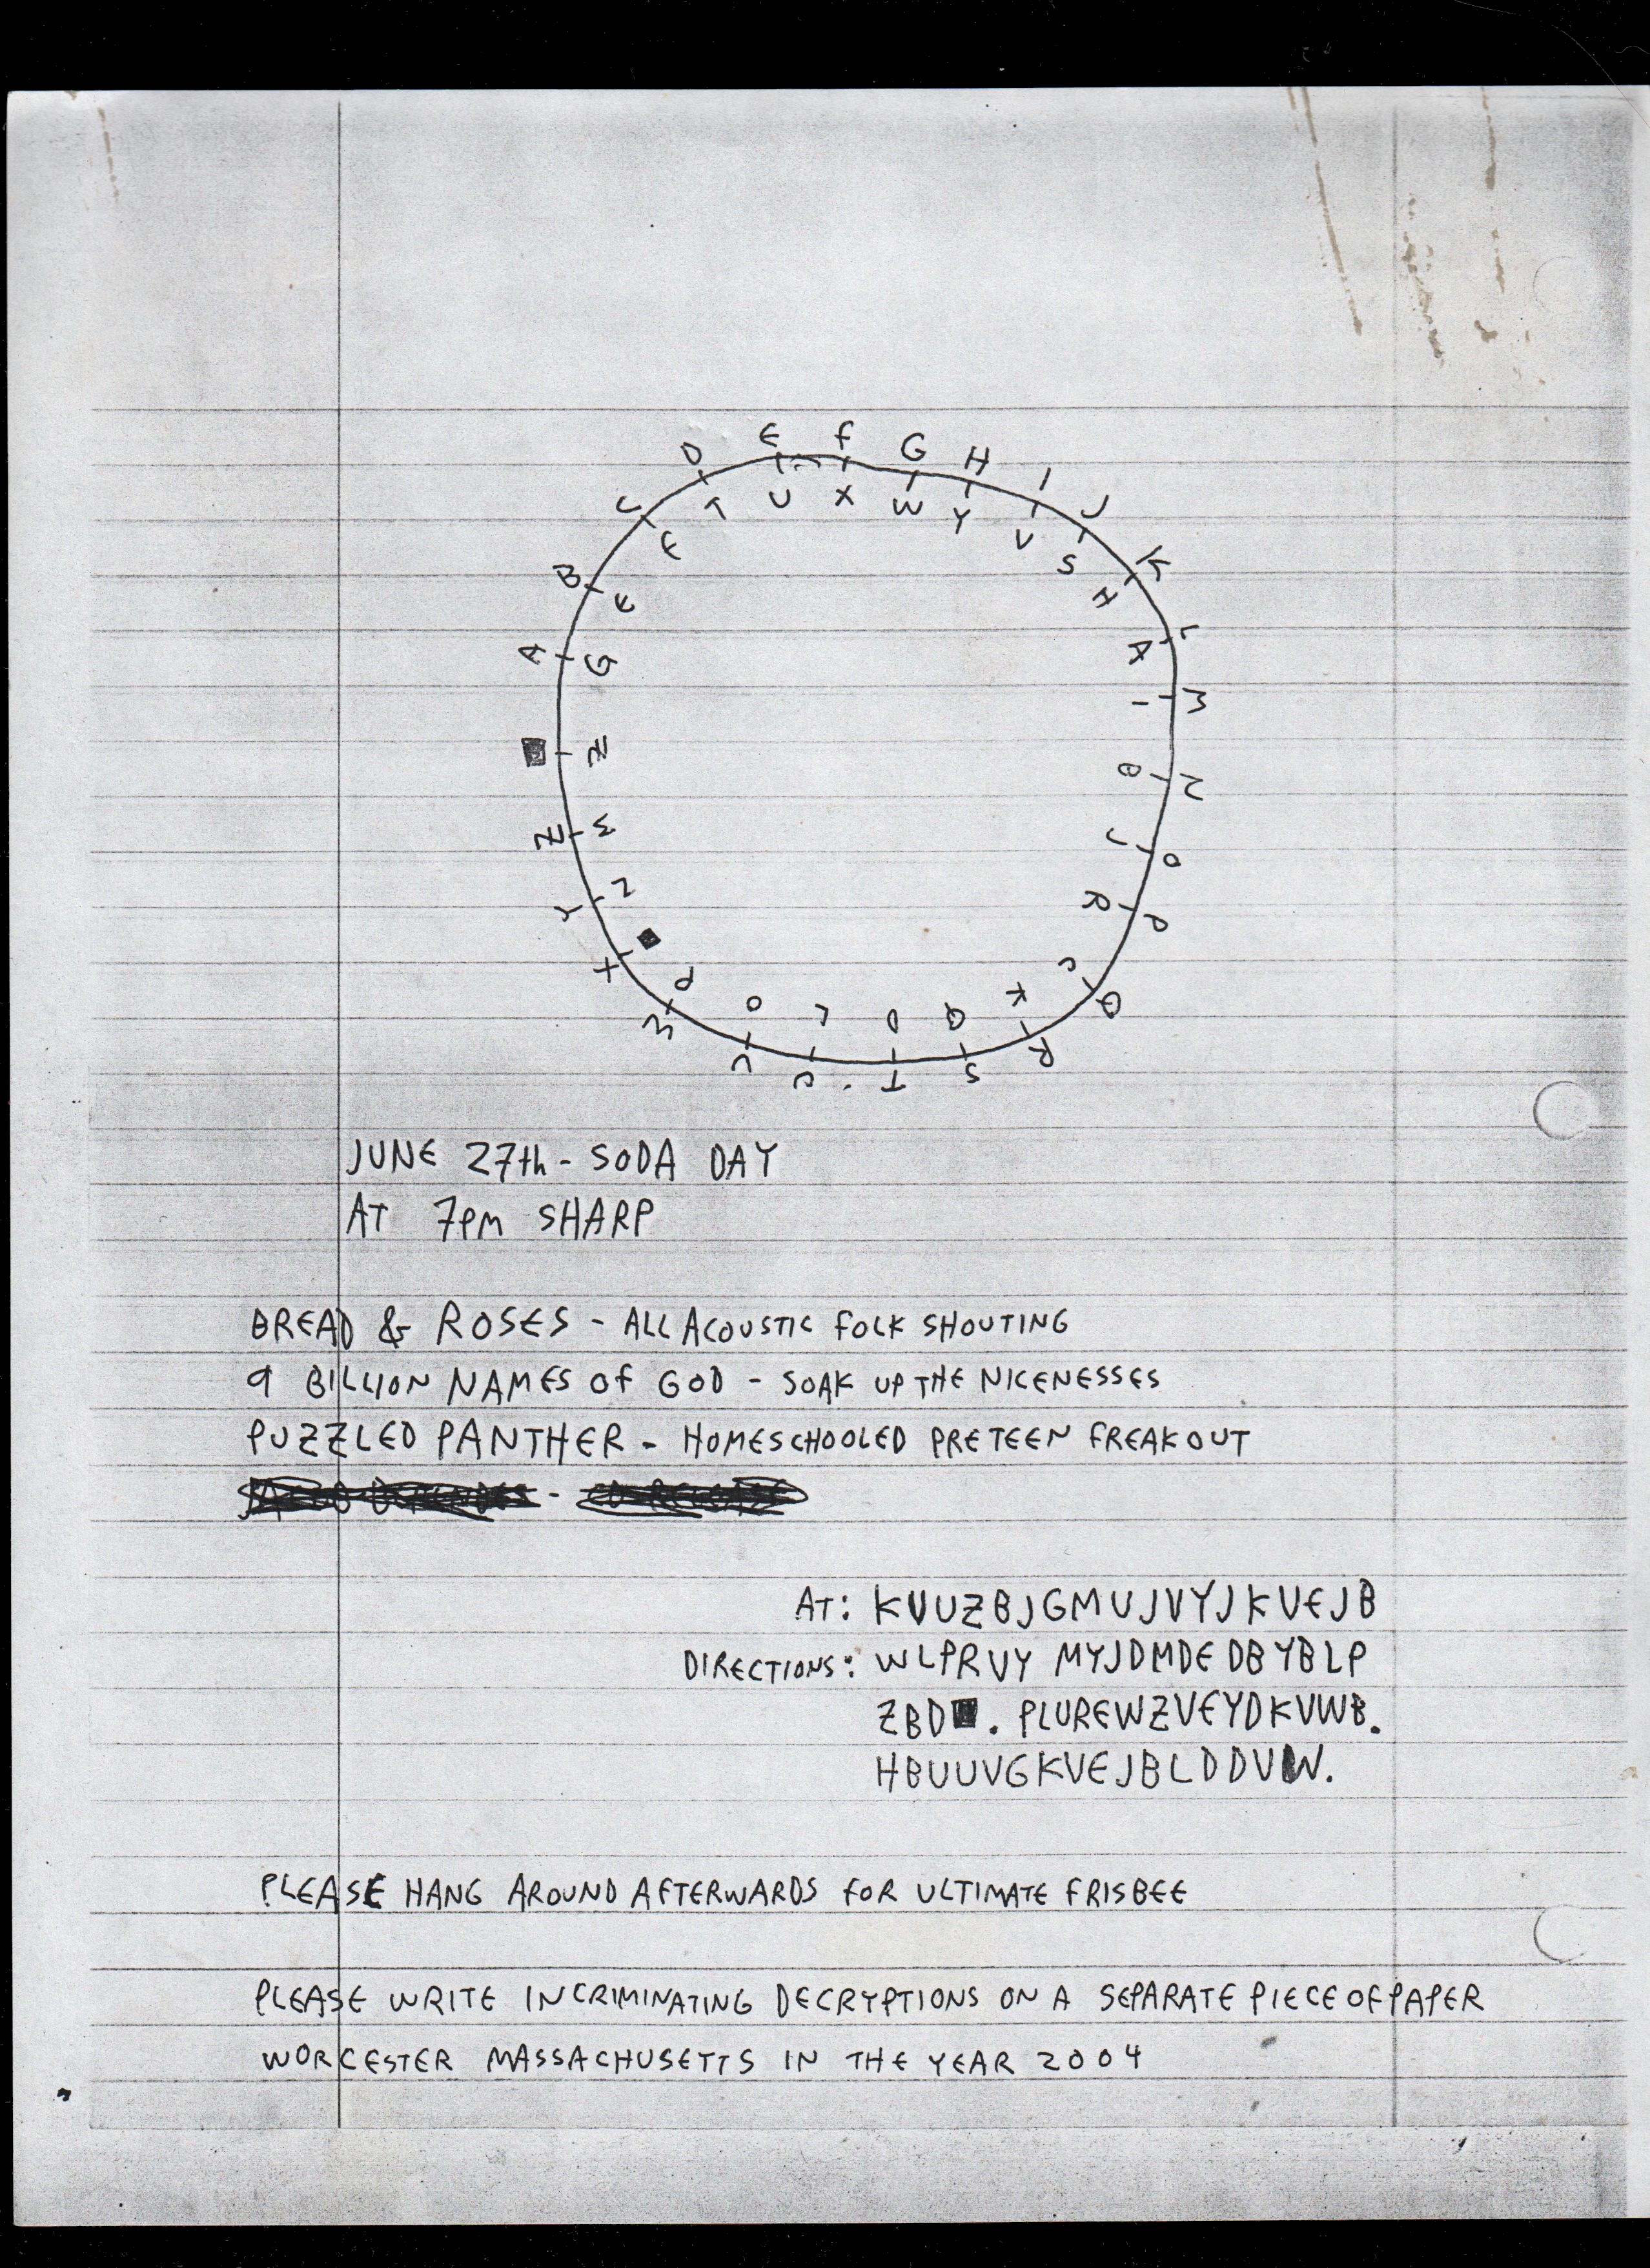 A B C D E F G H I J K L M N O P Q R S T U V W X Y Z ■
G E F T U X W Y V S H A I B J R C K Q D L O P ■ N M Z
JUNE 27th - SODA DAY
AT 7PM SHARP
BREAD & ROSES - ALL ACOUSTIC FOLK SHOUTING
9 BILLION NAMES OF GOD - SOAK UP THE NICENESSES
PUZZLED PANTHER - HOMESCHOOLED PRETEEN FREAKOUT
AT: KVUZBJGMUJVYJKVEJB
DIRECTIONS: WLPRVY MYJDMDE DBYBLP
ZBD■. PLUREWZVEYDKVWB.
HBUUVGKVEJBLDDVW.
PLEASE HANG AROUND AFTERWARDS FOR ULTIMATE FRISBEE
PLEASE WRITE INCRIMINATING DECRYPTIONS ON A SEPARATE PIECE OF PAPER
WORCESTER MASSACHUSETTS IN THE YEAR 2004